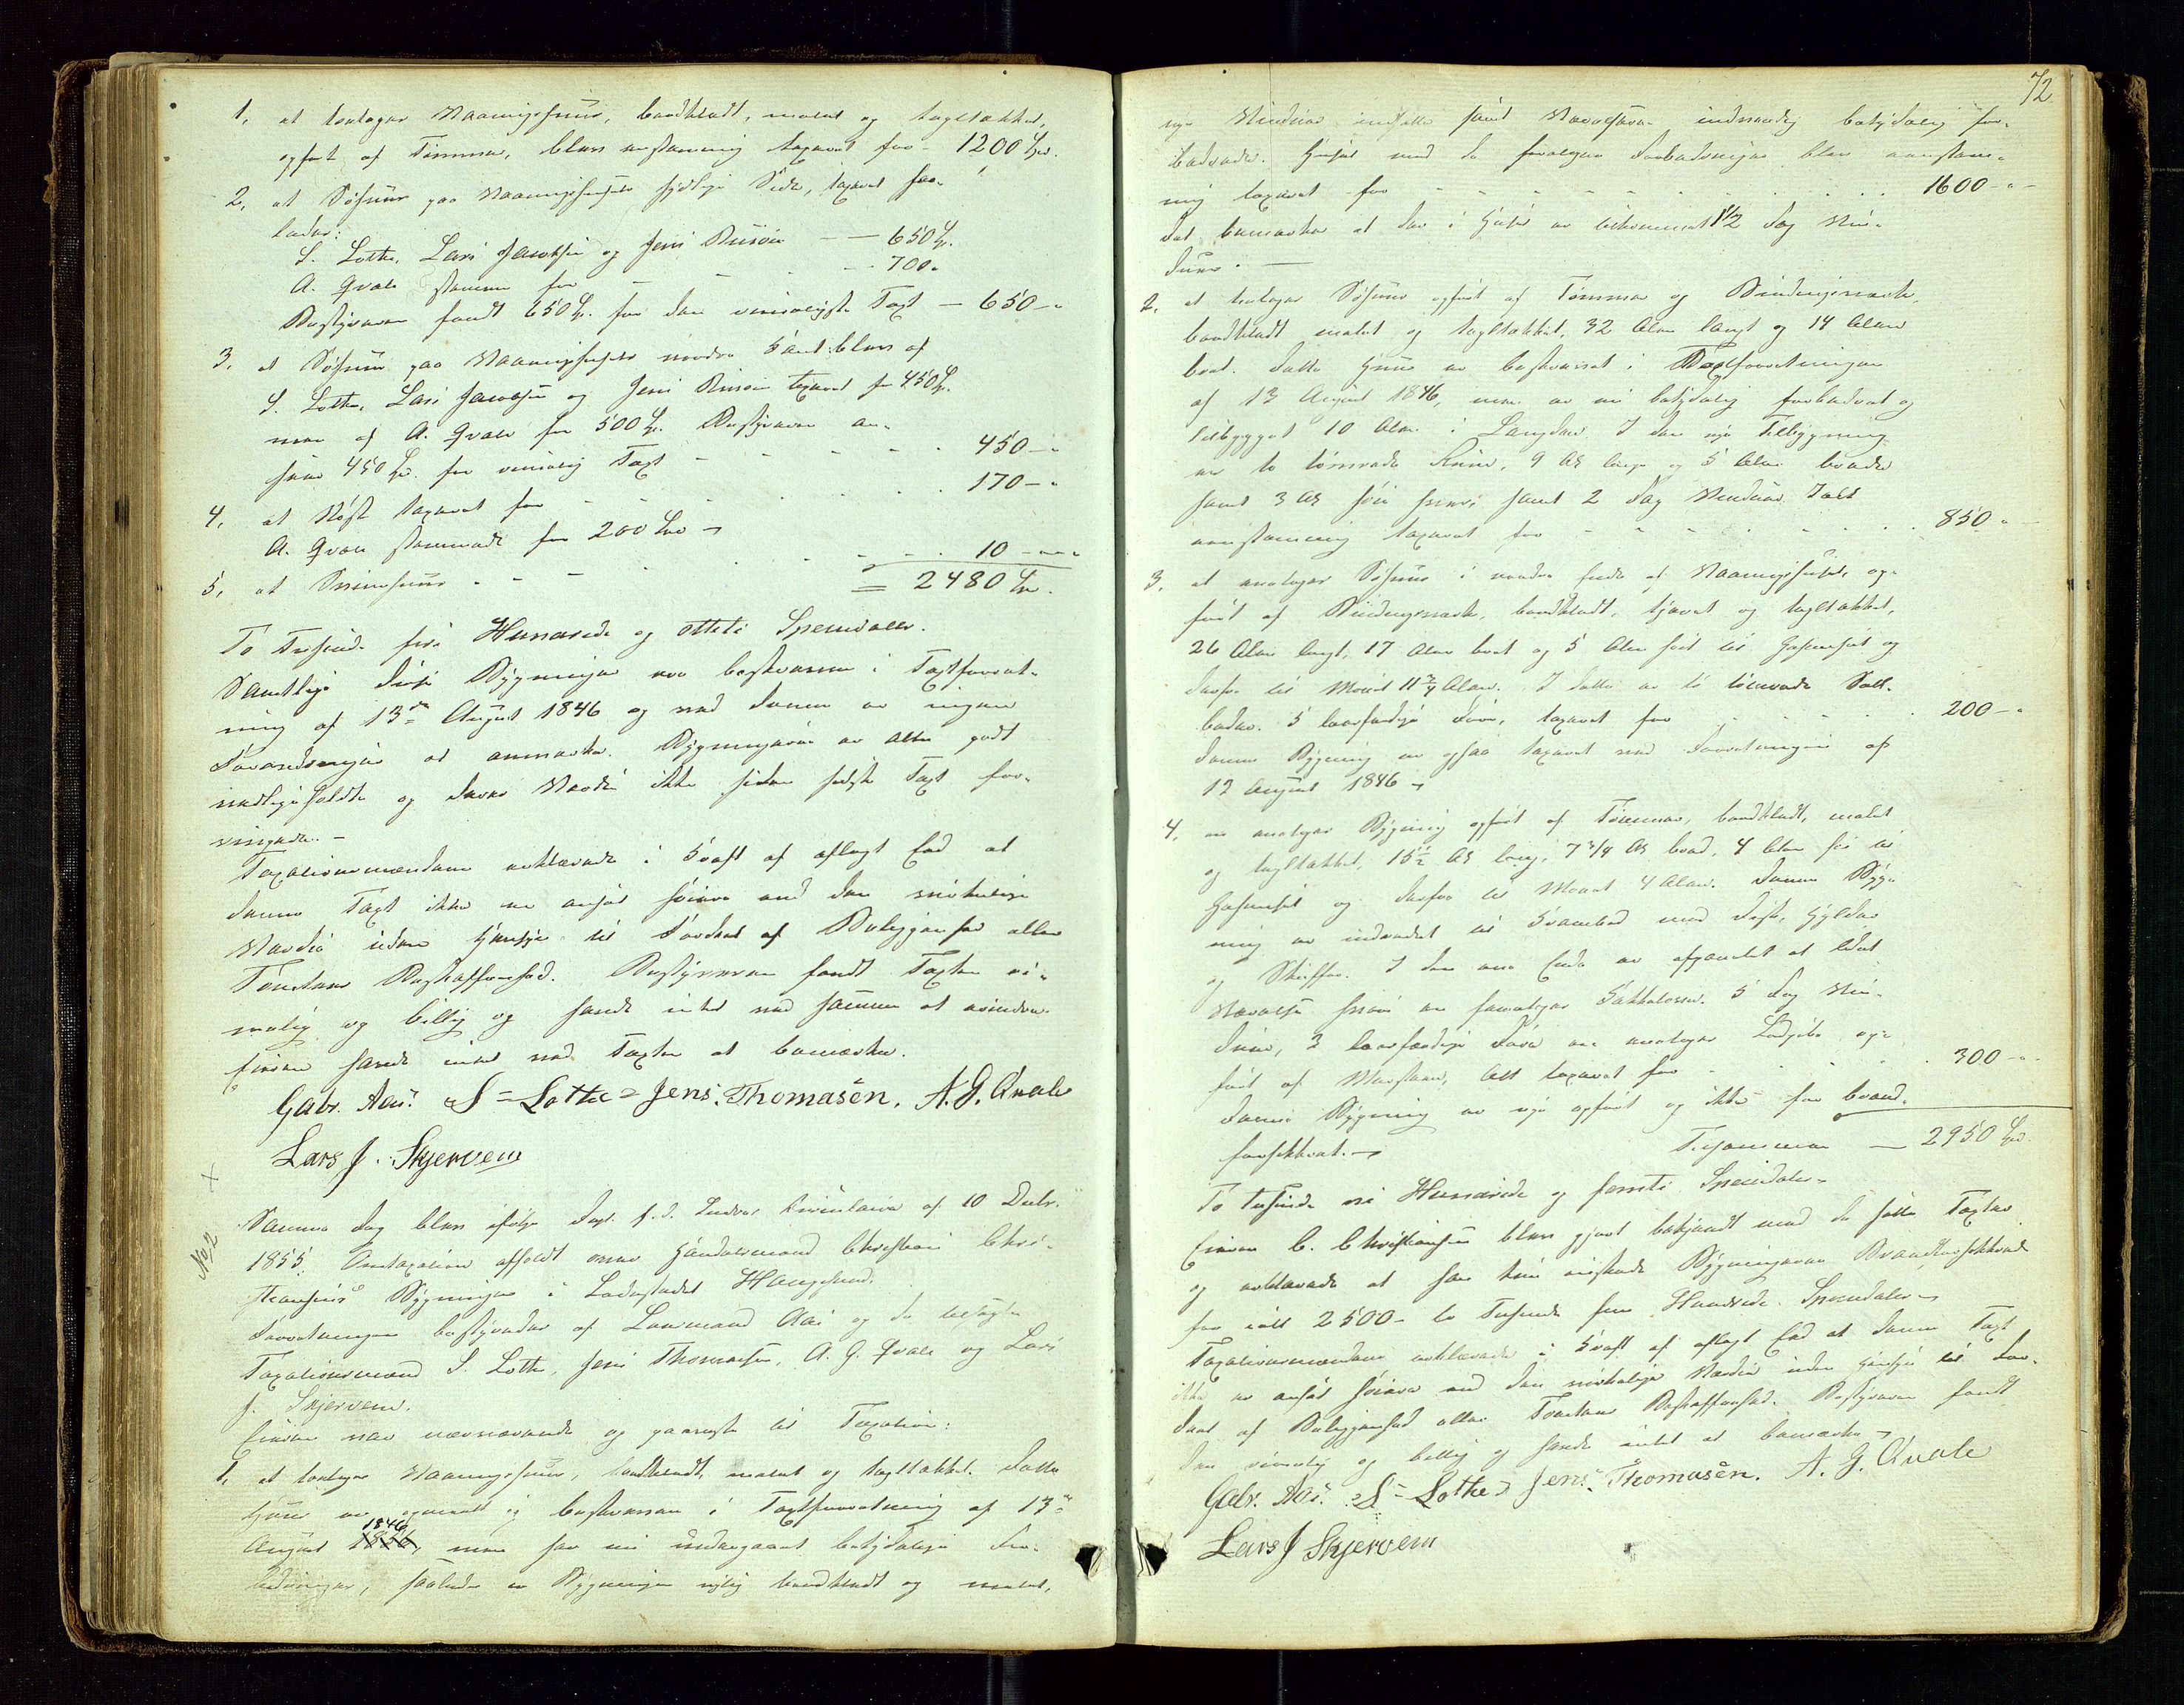 1, et toetages Vaaningshuus, bordklædt, malet og tagltækket,
opført af Tømmer, blev enstemmig taxeret for - 1200 Spd.
2, et Søhuus paa Vaaningshusets sydlige Side, taxeret saa-
ledes:
S. Lothe, Lars Jacobsen og Jens — — 650 Sp.
A. Qvale stemmer for — — 700 "
Bestyreren fandt 650 Sp. for den rimeligste Taxt — 650 - "
3, et Søhuus paa Vaaningshusets nordre Kant blev af
S. Lothe, Lars Jacobsen og Jens taxeret for 450 Sp.
men af A. Qvale for 500 Sp. Bestyreren an-
saae 450 Sp. for rimelig Taxt - - - 450 - "
4, et Nøst taxeret for - - - 170 - "
A. Qvale stemmede for 200 Spd
5, et Sviinehuus - - - 10 - "
= 2480 Spd.
To Tusinde fire Hundrede og otteti Speciedaler.
Samtlige disse Bygninger ere beskrevne i Taxtforret-
ning af 13de August 1846 og ved denne er ingen
Forandringer at anmærke. Bygningerne er alle godt
vedligeholdte og deres Værdi ikke siden sidste Taxt for-
ringede. -
Taxationsmændene erklærede i Kraft af aflagt Eed at
denne Taxt ikke er ansat høiere end den virkelige
Værdie uden Hensyn til Fordeel af Beliggenhed eller
Tomtens Beskaffenhed. Bestyreren fandt Taxten ri-
melig og billig og havde intet ved samme at erindre.
Eieren havde intet ved Taxten at bemærke.
Gabr. Aas. S = Lothe = Jens. Thomasen. A. G. Qvale
Lars J. Skjervem
x
No 2
Samme Dag blev ifølge Dept. f. d. Indres Circulaire af 10 Decbr.
1855 Omtaxation afholdt over Handelsmand Christian Chri-
stiansens Bygninger i Ladestedet Haugesund.
Forretningen bestyredes af Lensmand Aas og de udtagte
Taxationsmænd S. Lothe, Jens Thomasen, A. G. Qvale og Lars
J. Skjervem.
Eieren var nærværende og paaviste til Taxation:
1, et toetages Vaaningshuus, bordklædt, malet og tagltækket. Dette
Huus er opmaalt og beskreven i Taxtforretning af 13de
August 1846 1856, men har nu undergaaet betydelige For-
bedringer, saaledes er Bygningen nylig bordklædt og malet,
72
nye Vinduer indsatte samt Værelserne indvendig betydelig for-
bedrede. Huset med de foretagne Forbedringer blev eenstem-
mig taxeret for - - - 1600 - " -
Det bemærkes at der i Huset er 1½ Fag Vin-
duer. —
2, et toetages Søhuus opført af Tømmer og Bindingsværk,
bordklædt malet og tagltækket, 32 Alen langt og 14 Alen
bred. Dette Huus er beskrevet i Taxtforretningen
af 13 August 1846, men er nu betydelig forbedret og
tilbygget 10 Alen i Længden. I den nye Tilbygning
er to tømrede Rum, 9 Al lange og 5 Alen brede
samt 3 Al høie hver; samt 2 Fag Vinduer. Tælt
eenstemmig taxeret for - - - 850 - " -
3, et eenetages Søhuus i nordre Ende af Vaaningshuset, op-
ført af Bindingsværk, bordklædt, tjæret og tagltækket,
26 Alen langt, 17 Alen bred og 5 Alen høit til Gesimset og
derfra til Mønet 11¾ Alen. I dette er to tømrede Salt-
boder. 5 læsfærdige Døre, taxeret for - - - 200 - "
Denne Bygning er ogsaa taxeret ved Forretningen af
13 August 1846
4, en eenetages Bygning opført af Tømmer, bordklædt, malet
og tagltækket, 15½ Al lang, 7¾ Al bred, 4 Alen høi til
Gesimset og derfra til Mønet 4 Alen. Denne Byg-
ning er indredet til Krambod med Disk, Hylder
og Skuffer. I den ene Ende er afpanelet et lidet
Værelse hvori en Kakkelovn. 5 Fag Vin-
duer, 3 læsfærdige Døre en op-
ført af Muursteen, Alt taxeret for - - - 300 - "
Denne Bygning er nye opført og ikke før brand-
forsikkret. — Tilsammen — 2950 Spd.
To tusinde ni Hundrede og femti Speciedaler
Eieren C. Christiansen blev gjort bekjendt med de satte Taxter
og erklærede at han kun ønskede Bygningerne Brandforsikkrede
for ialt 2500 - to Tusinde fem Hundrede Speciedaler
Taxationsmændene erklærede i Kraft af aflagt Eed at denne Taxt
ikke er ansat høiere end den virkelige Værdie uden Hensyn til For-
deel af Beliggenhed eller Tomtens Beskaffenhed. Bestyreren fandt
den rimelig og billig og havde intet at bemærke
Gabr. Aas. S = Lothe = Jens. Thomasen. A. G. Qvale
Lars J Skjervem